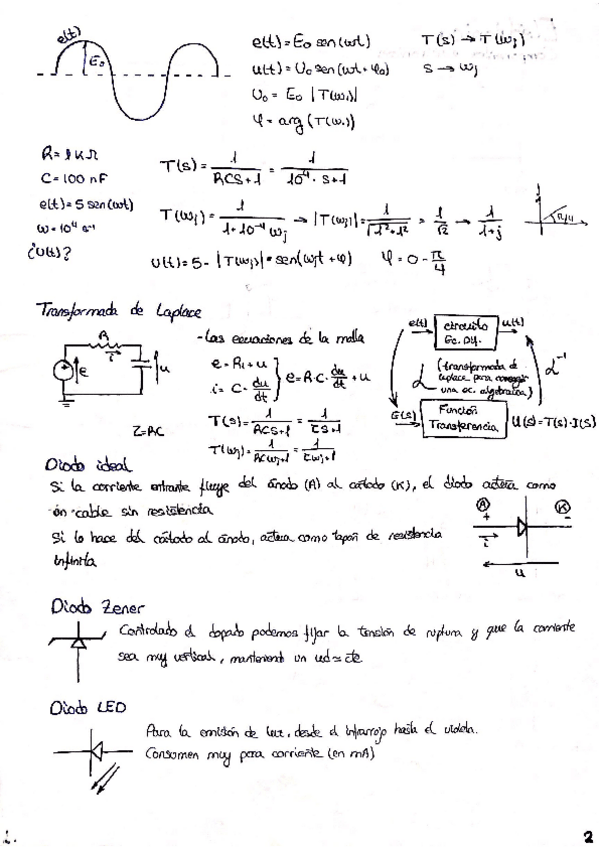 e(t)
E₀
e(t) = E₀ sen(ωt)
T(s) → T(ωj)
u(t) = U₀ sen(ωt + φ₀)
s → ωj
U₀ = E₀ |T(ωj)|
φ = arg(T(ωj))
R = 1 KΩ
C = 100 nF
e(t) = 5 sen(ωt)
ω = 10⁴ s⁻¹
¿U(t)?
T(s) = 1/(RCS+1) = 1/(10⁻⁴·s+1)
T(ωj) = 1/(1+10⁻⁴ωj) → |T(ωj)| = 1/√(1²+1²) = 1/√2 → 1/(1+j)
π/4
u(t) = 5 · |T(ωj)| · sen(ωt + φ)
φ = 0 - π/4
Transformada de Laplace
R
i
e
u
Z = RC
- Las ecuaciones de la malla
e = Ri + u
i = C · du/dt
e = R·C · du/dt + u
T(s) = 1/(RCS+1) = 1/(ZS+1)
T(ωj) = 1/(RCωj+1) = 1/(Zωj+1)
e(t)
circuito
Ec. Df.
u(t)
(transformada de
laplace para conseguir
una ec. algebraica)
E(s)
Función
Transferencia
U(s) = T(s) · I(s)
Diodo ideal
Si la corriente entrante fluye del ánodo (A) al cátodo (K), el diodo actúa como
un cable sin resistencia
Si lo hace del cátodo al ánodo, actúa como tapón de resistencia
infinita
A
K
+
-
i
u
Diodo Zener
Controlado el dopado podemos fijar la tensión de ruptura y que la corriente
sea muy vertical, manteniend un ud ≈ cte
Diodo LED
Para la emisión de luz, desde el infrarrojo hasta el violeta.
Consumen muy poca corriente (en mA)
2